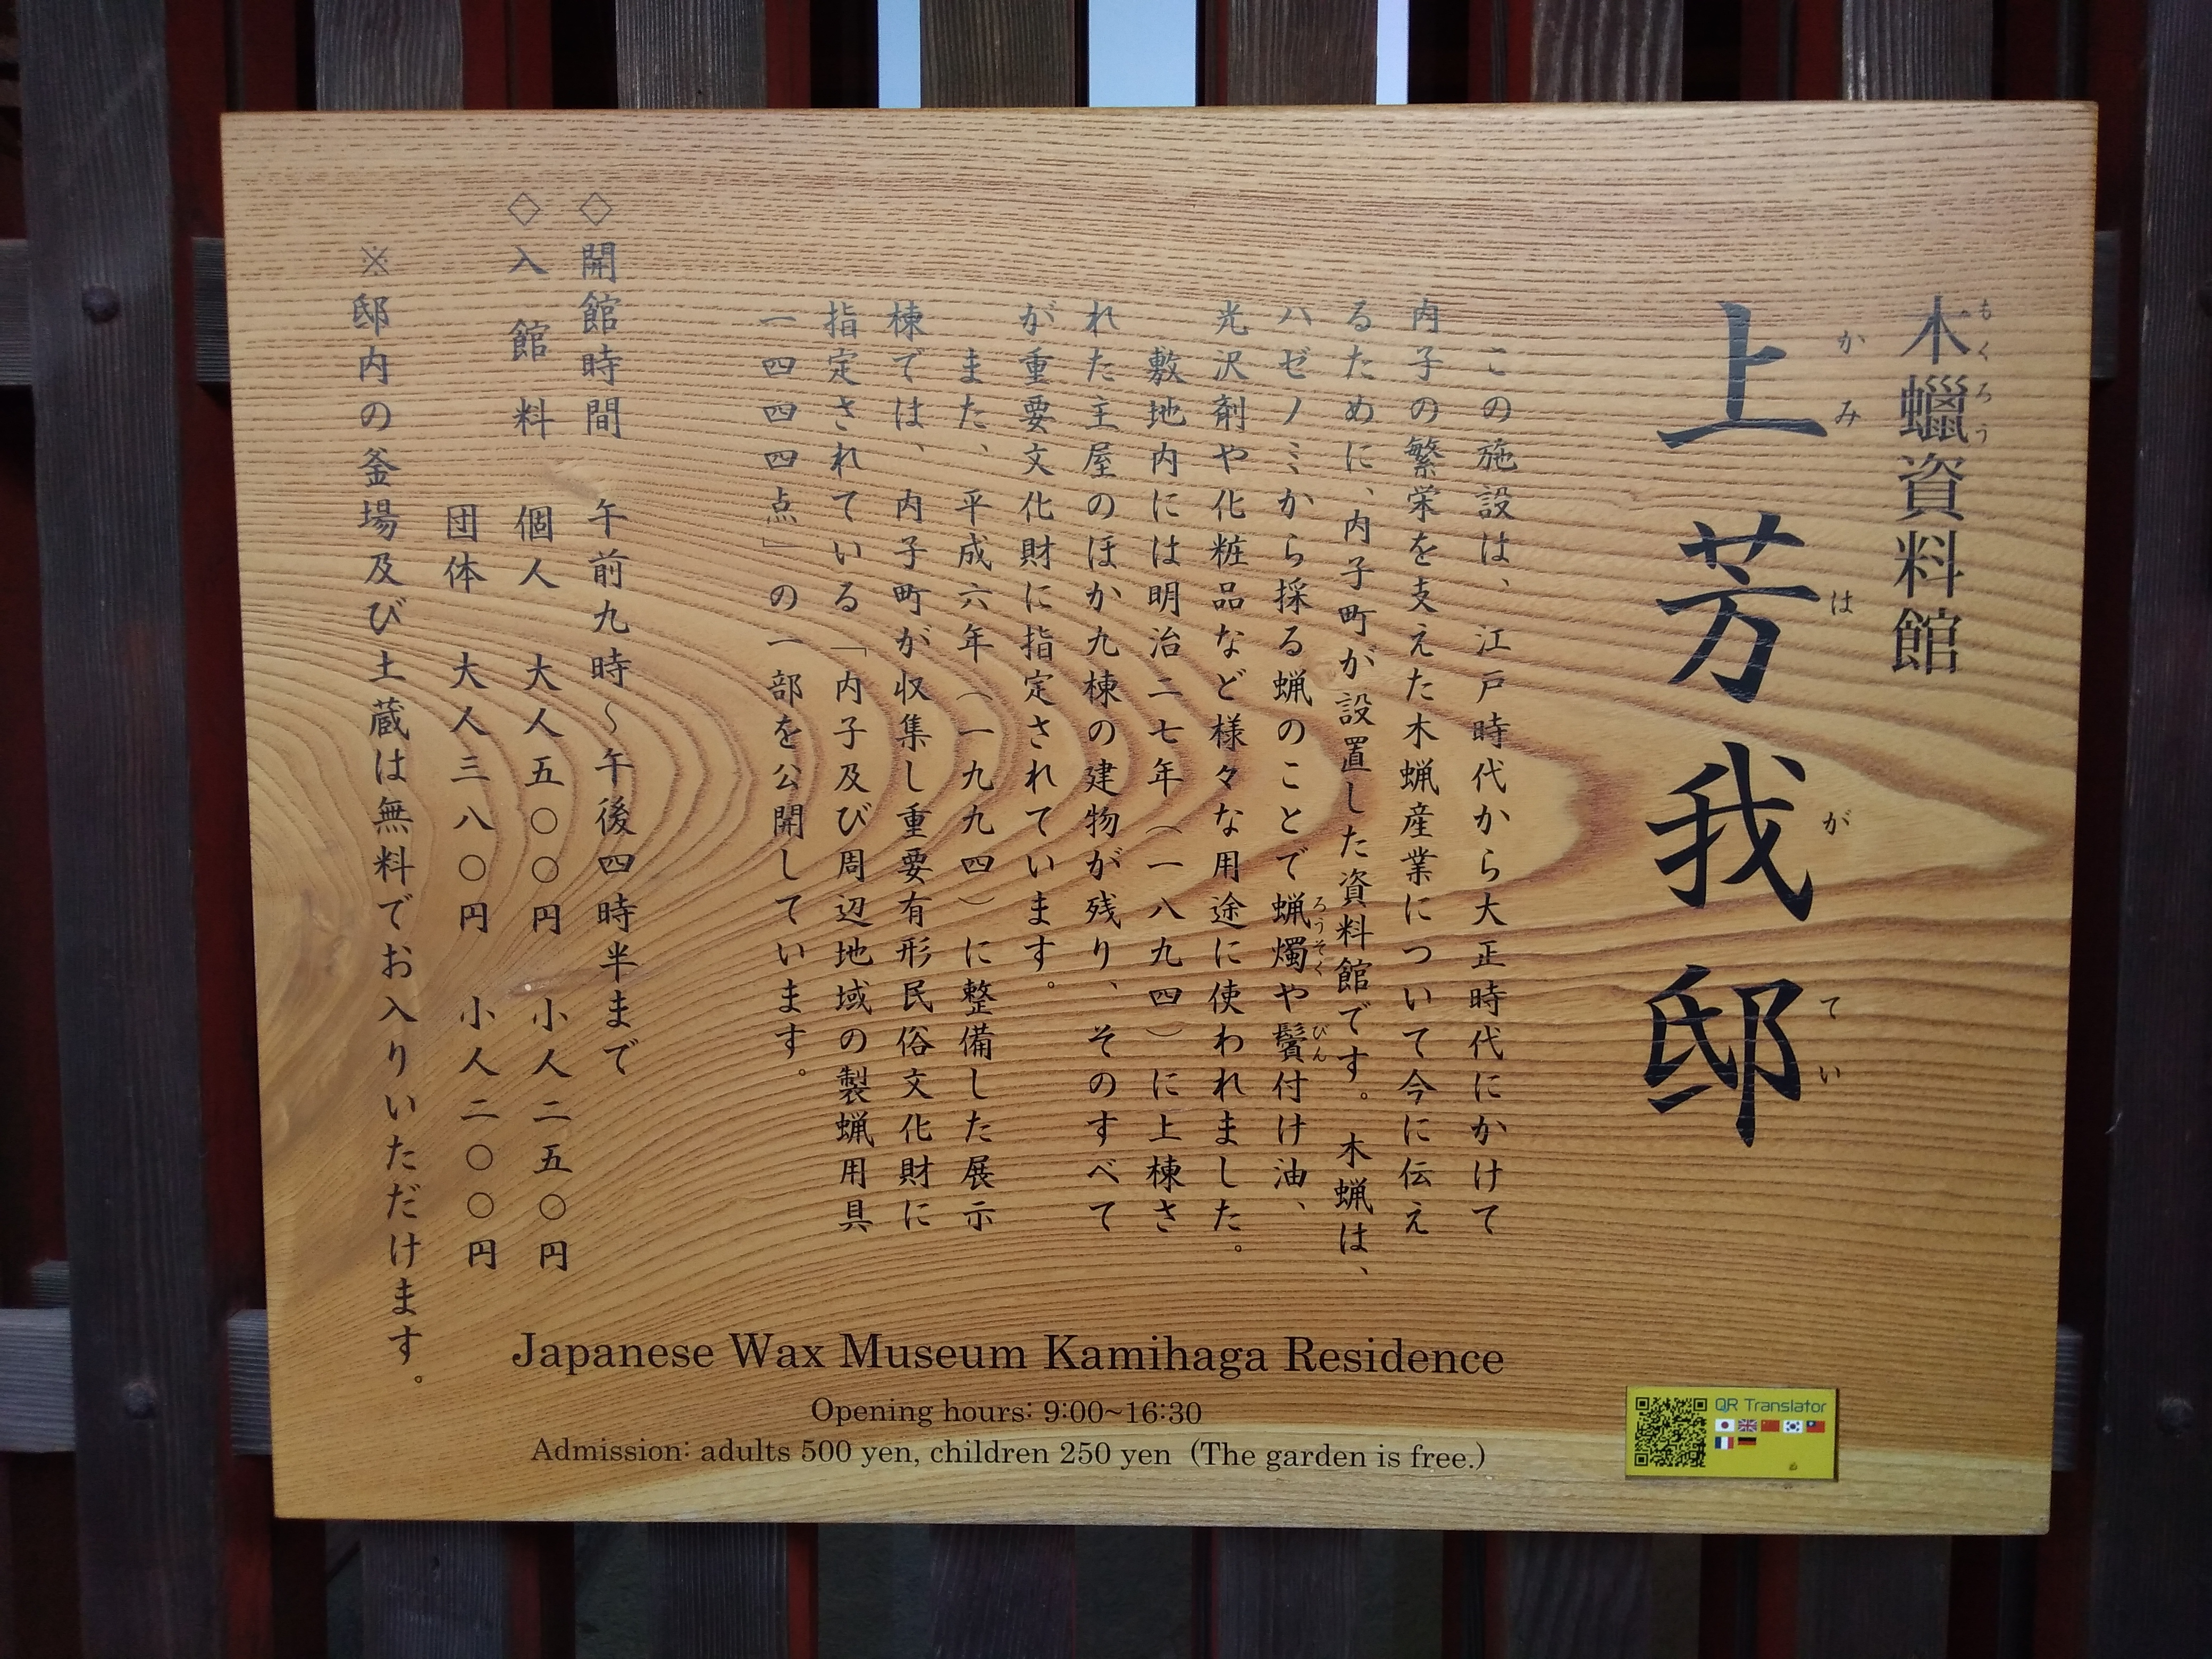 木蠟資料館
もくろう
上芳我邸
かみはがてい
この施設は、江戸時代から大正時代にかけて
内子の繁栄を支えた木蝋産業について今に伝え
るために、内子町が設置した資料館です。木蝋は、
ハゼノミから採る蝋のことで蝋燭や鬢付け油、
ろうそく びん
光沢剤や化粧品など様々な用途に使われました。
敷地内には明治二七年(一八九四)に上棟さ
れた主屋のほか九棟の建物が残り、そのすべて
が重要文化財に指定されています。
また、平成六年(一九九四)に整備した展示
棟では、内子町が収集し重要有形民俗文化財に
指定されている「内子及び周辺地域の製蝋用具
一四四四点」の一部を公開しています。
◇開館時間 午前九時～午後四時半まで
◇入館料 個人 大人五〇〇円 小人二五〇円
団体 大人三八〇円 小人二〇〇円
※邸内の釜場及び土蔵は無料でお入りいただけます。
Japanese Wax Museum Kamihaga Residence
Opening hours: 9:00~16:30
Admission: adults 500 yen, children 250 yen (The garden is free.)
QR Translator